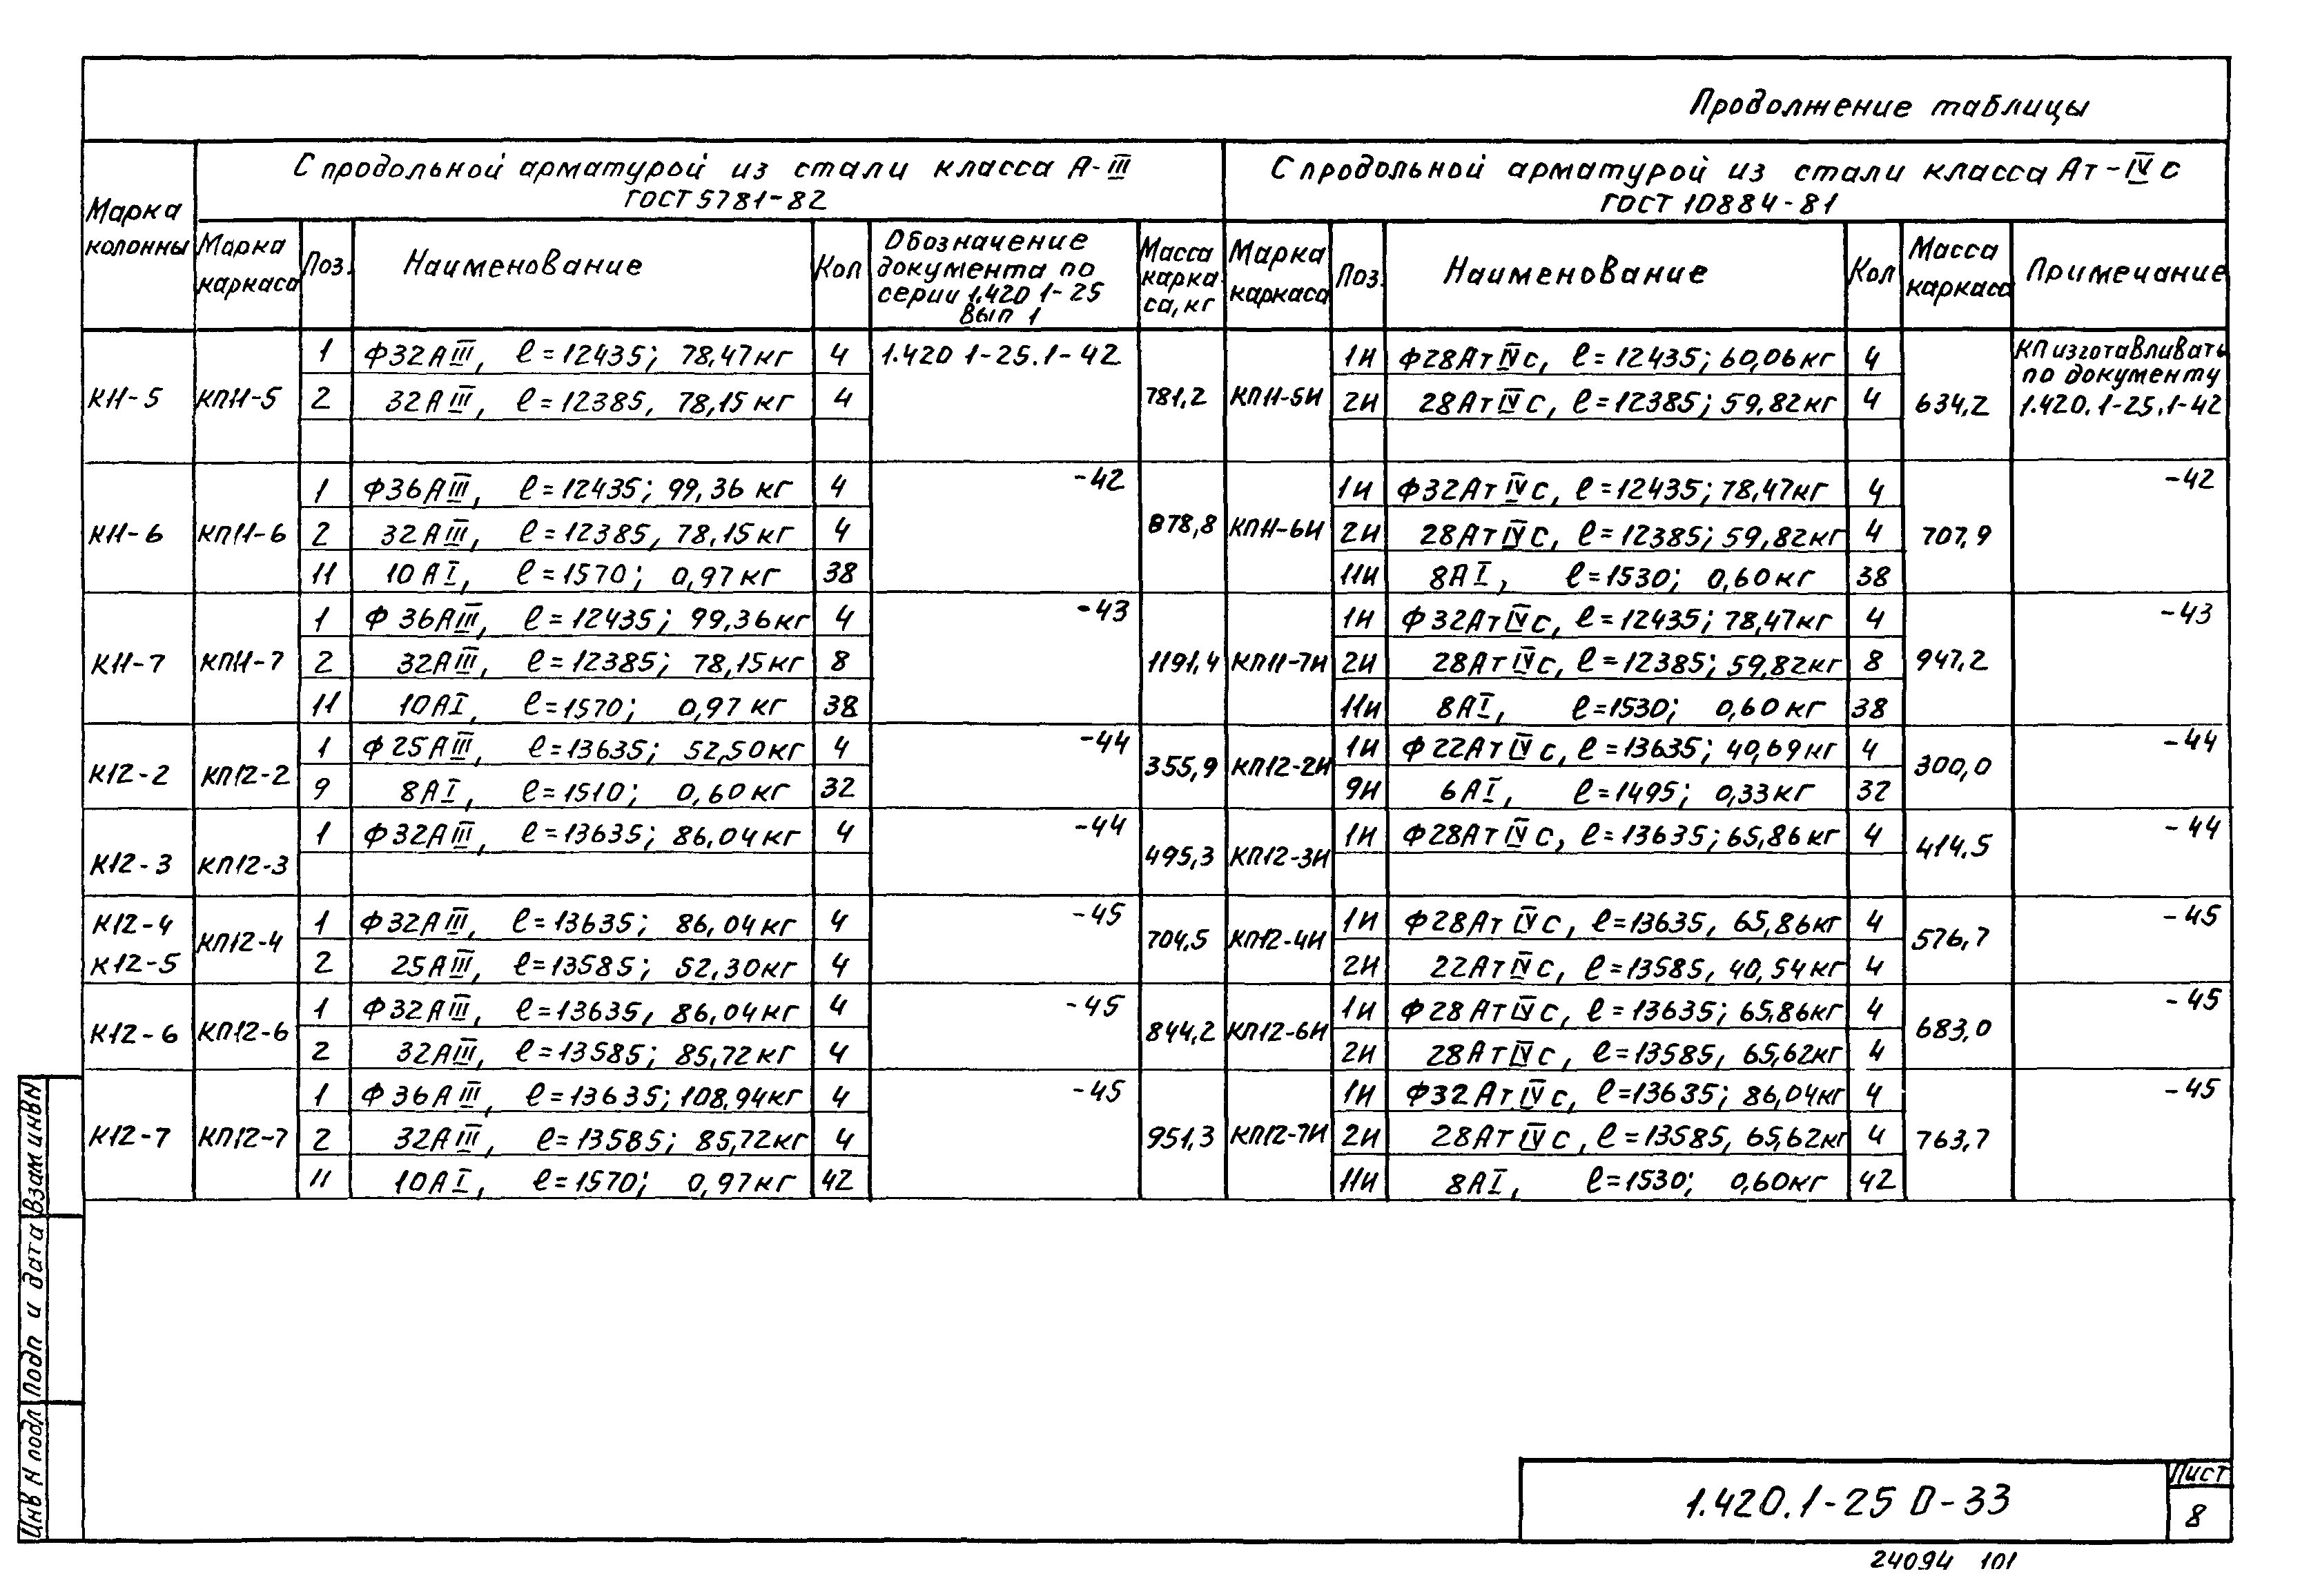 Продолжение таблицы
Марка колонны
С продольной арматурой из стали класса А-III ГОСТ 5781-82
С продольной арматурой из стали класса Ат-IVс ГОСТ 10884-81
Марка каркаса Поз. Наименование Кол Обозначение документа по серии 1.420 1-25 Вып 1 Масса каркаса, кг Марка каркаса Поз. Наименование Кол Масса каркаса Примечание
К11-5 КП11-5 781,2 КП11-5И 634,2 КП изготавливать по документу 1.420.1-25.1-42
1 Ф32АIII, ℓ=12435; 78,47кг 4 1.420 1-25.1-42 1И Ф28АтIVс, ℓ=12435; 60,06кг 4
2 32АIII, ℓ=12385, 78,15кг 4 2И 28АтIVс, ℓ=12385; 59,82кг 4
К11-6 КП11-6 878,8 КП11-6И 707,9
1 Ф36АIII, ℓ=12435; 99,36 кг 4 -42 1И Ф32АтIVс, ℓ=12435; 78,47кг 4 -42
2 32АIII, ℓ=12385, 78,15кг 4 2И 28АтIVс, ℓ=12385; 59,82кг 4
11 10АI, ℓ=1570; 0,97кг 38 11И 8АI, ℓ=1530; 0,60кг 38
К11-7 КП11-7 1191,4 КП11-7И 947,2
1 Ф36АIII, ℓ=12435; 99,36кг 4 -43 1И Ф32АтIVс, ℓ=12435; 78,47кг 4 -43
2 32АIII, ℓ=12385; 78,15кг 8 2И 28АтIVс, ℓ=12385; 59,82кг 8
11 10АI, ℓ=1570; 0,97 кг 38 11И 8АI, ℓ=1530; 0,60кг 38
К12-2 КП12-2 355,9 КП12-2И 300,0
1 Ф25АIII, ℓ=13635; 52,50кг 4 -44 1И Ф22АтIVс, ℓ=13635; 40,69кг 4 -44
9 8АI, ℓ=1510; 0,60кг 32 9И 6АI, ℓ=1495; 0,33кг 32
К12-3 КП12-3 495,3 КП12-3И 414,5
1 Ф32АIII, ℓ=13635; 86,04кг 4 -44 1И Ф28АтIVс, ℓ=13635; 65,86кг 4 -44
К12-4 К12-5 КП12-4 704,5 КП12-4И 576,7
1 Ф32АIII, ℓ=13635; 86,04кг 4 -45 1И Ф28АтIVс, ℓ=13635, 65,86кг 4 -45
2 25АIII, ℓ=13585; 52,30кг 4 2И 22АтIVс, ℓ=13585, 40,54кг 4
К12-6 КП12-6 844,2 КП12-6И 683,0
1 Ф32АIII, ℓ=13635, 86,04кг 4 -45 1И Ф28АтIVс, ℓ=13635; 65,86кг 4 -45
2 32АIII, ℓ=13585; 85,72кг 4 2И 28АтIVс, ℓ=13585, 65,62кг 4
К12-7 КП12-7 951,3 КП12-7И 763,7
1 Ф36АIII, ℓ=13635; 108,94кг 4 -45 1И Ф32АтIVс, ℓ=13635; 86,04кг 4 -45
2 32АIII, ℓ=13585; 85,72кг 4 2И 28АтIVс, ℓ=13585, 65,62кг 4
11 10АI, ℓ=1570; 0,97кг 42 11И 8АI, ℓ=1530; 0,60кг 42
Взам инв N
Подп и дата
Инв N подл
1.420.1-25 0-33
Лист
8
24094 101